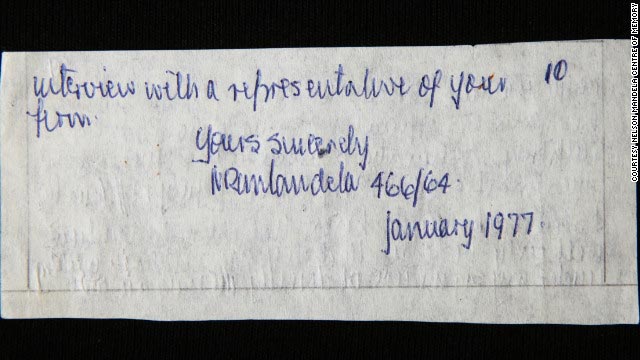 interview with a representative of your 10
firm.
Yours sincerely
NRMandela 466/64.
January 1977.
COURTESY NELSON MANDELA CENTRE OF MEMORY